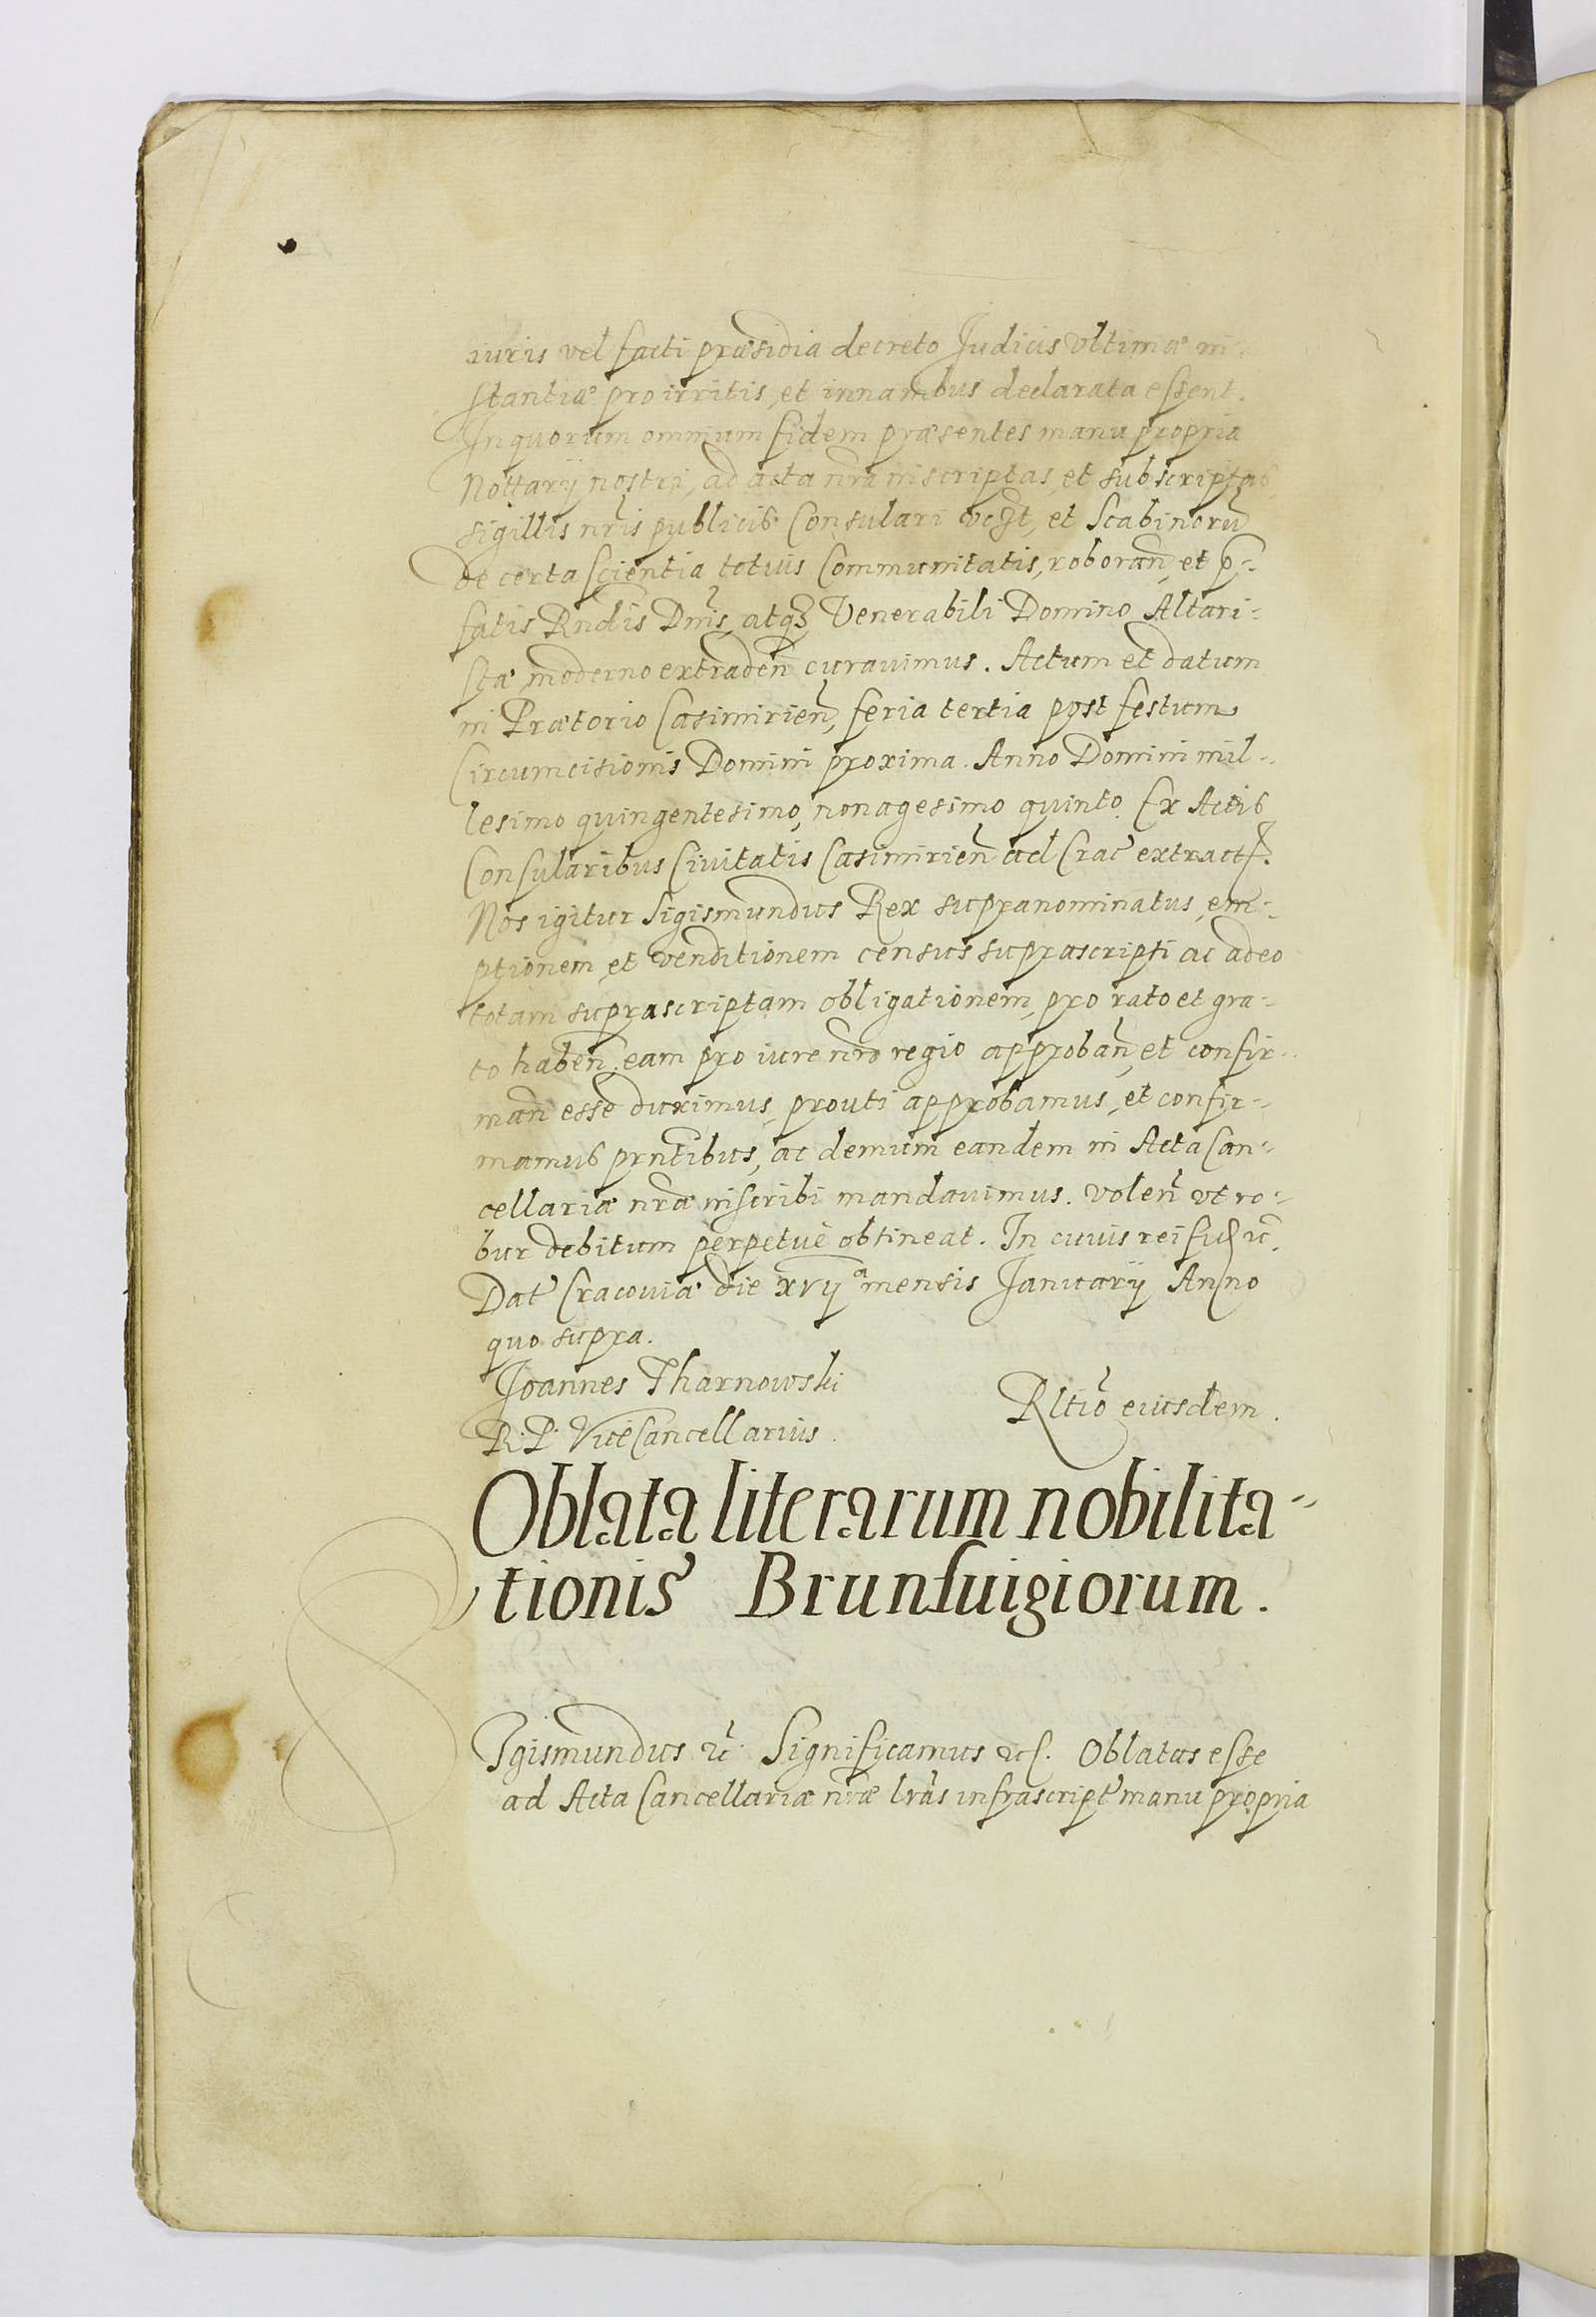 iuris vel facti præsidia decreto Judicis vltimæ in-
stantiæ pro irritis, et innanibus declarata essent.
In quorum omnium fidem præsentes manu propria
Nottarÿ nostri, ad acta nrã inscriptas, et subscriptas,
sigillis nr̃is publicis Consulari vc͠st, et Scabinorũ
de certa scientia totius Communitatis, roborañ, et p-
fatis Rndis Dnis, atq3 Venerabili Domino Altari-
stæ moderno extradeñ curauimus. Actum et datum
in Prætorio Casimirieñ, feria tertia post festum
Circumcisionis Domini proxima. Anno Domini mil-
lesimo quingentesimo, nonagesimo quinto. Ex Actis
Consularibus Ciuitatis Casimirieñ ad Crac̃ extract̃.
Nos igitur Sigismundus Rex supranominatus, em-
ptionem, et venditionem census suprascripti ac adeo
totam suprascriptam obligationem, pro rato et gra-
to habeñ, eam pro iure nr̃o regio approbañ, et confir-
mañ esse duximus, prouti approbamus, et confir-
mamus prntibus, ac demum eandem in Acta Can-
cellariæ nræ inscribi mandauimus. Voleñ vt ro-
bur debitum perpetuè obtineat. In cuius rei fid̃ ĩc̃.
Dat̃ Cracouiæ die xvij a mensis Januarÿ Anno
quo supra.
Joannes Tharnowski
R. P. ViceCancellarius.
Rltiõ eiusdem.
Oblata literarum nobilita-
tionis Brunsuigiorum.
Sgismundus ĩc̃. Significamus ĩc̃. Oblatas esse
ad Acta Cancellariæ nræ lrãs infrascript̃ manu propria